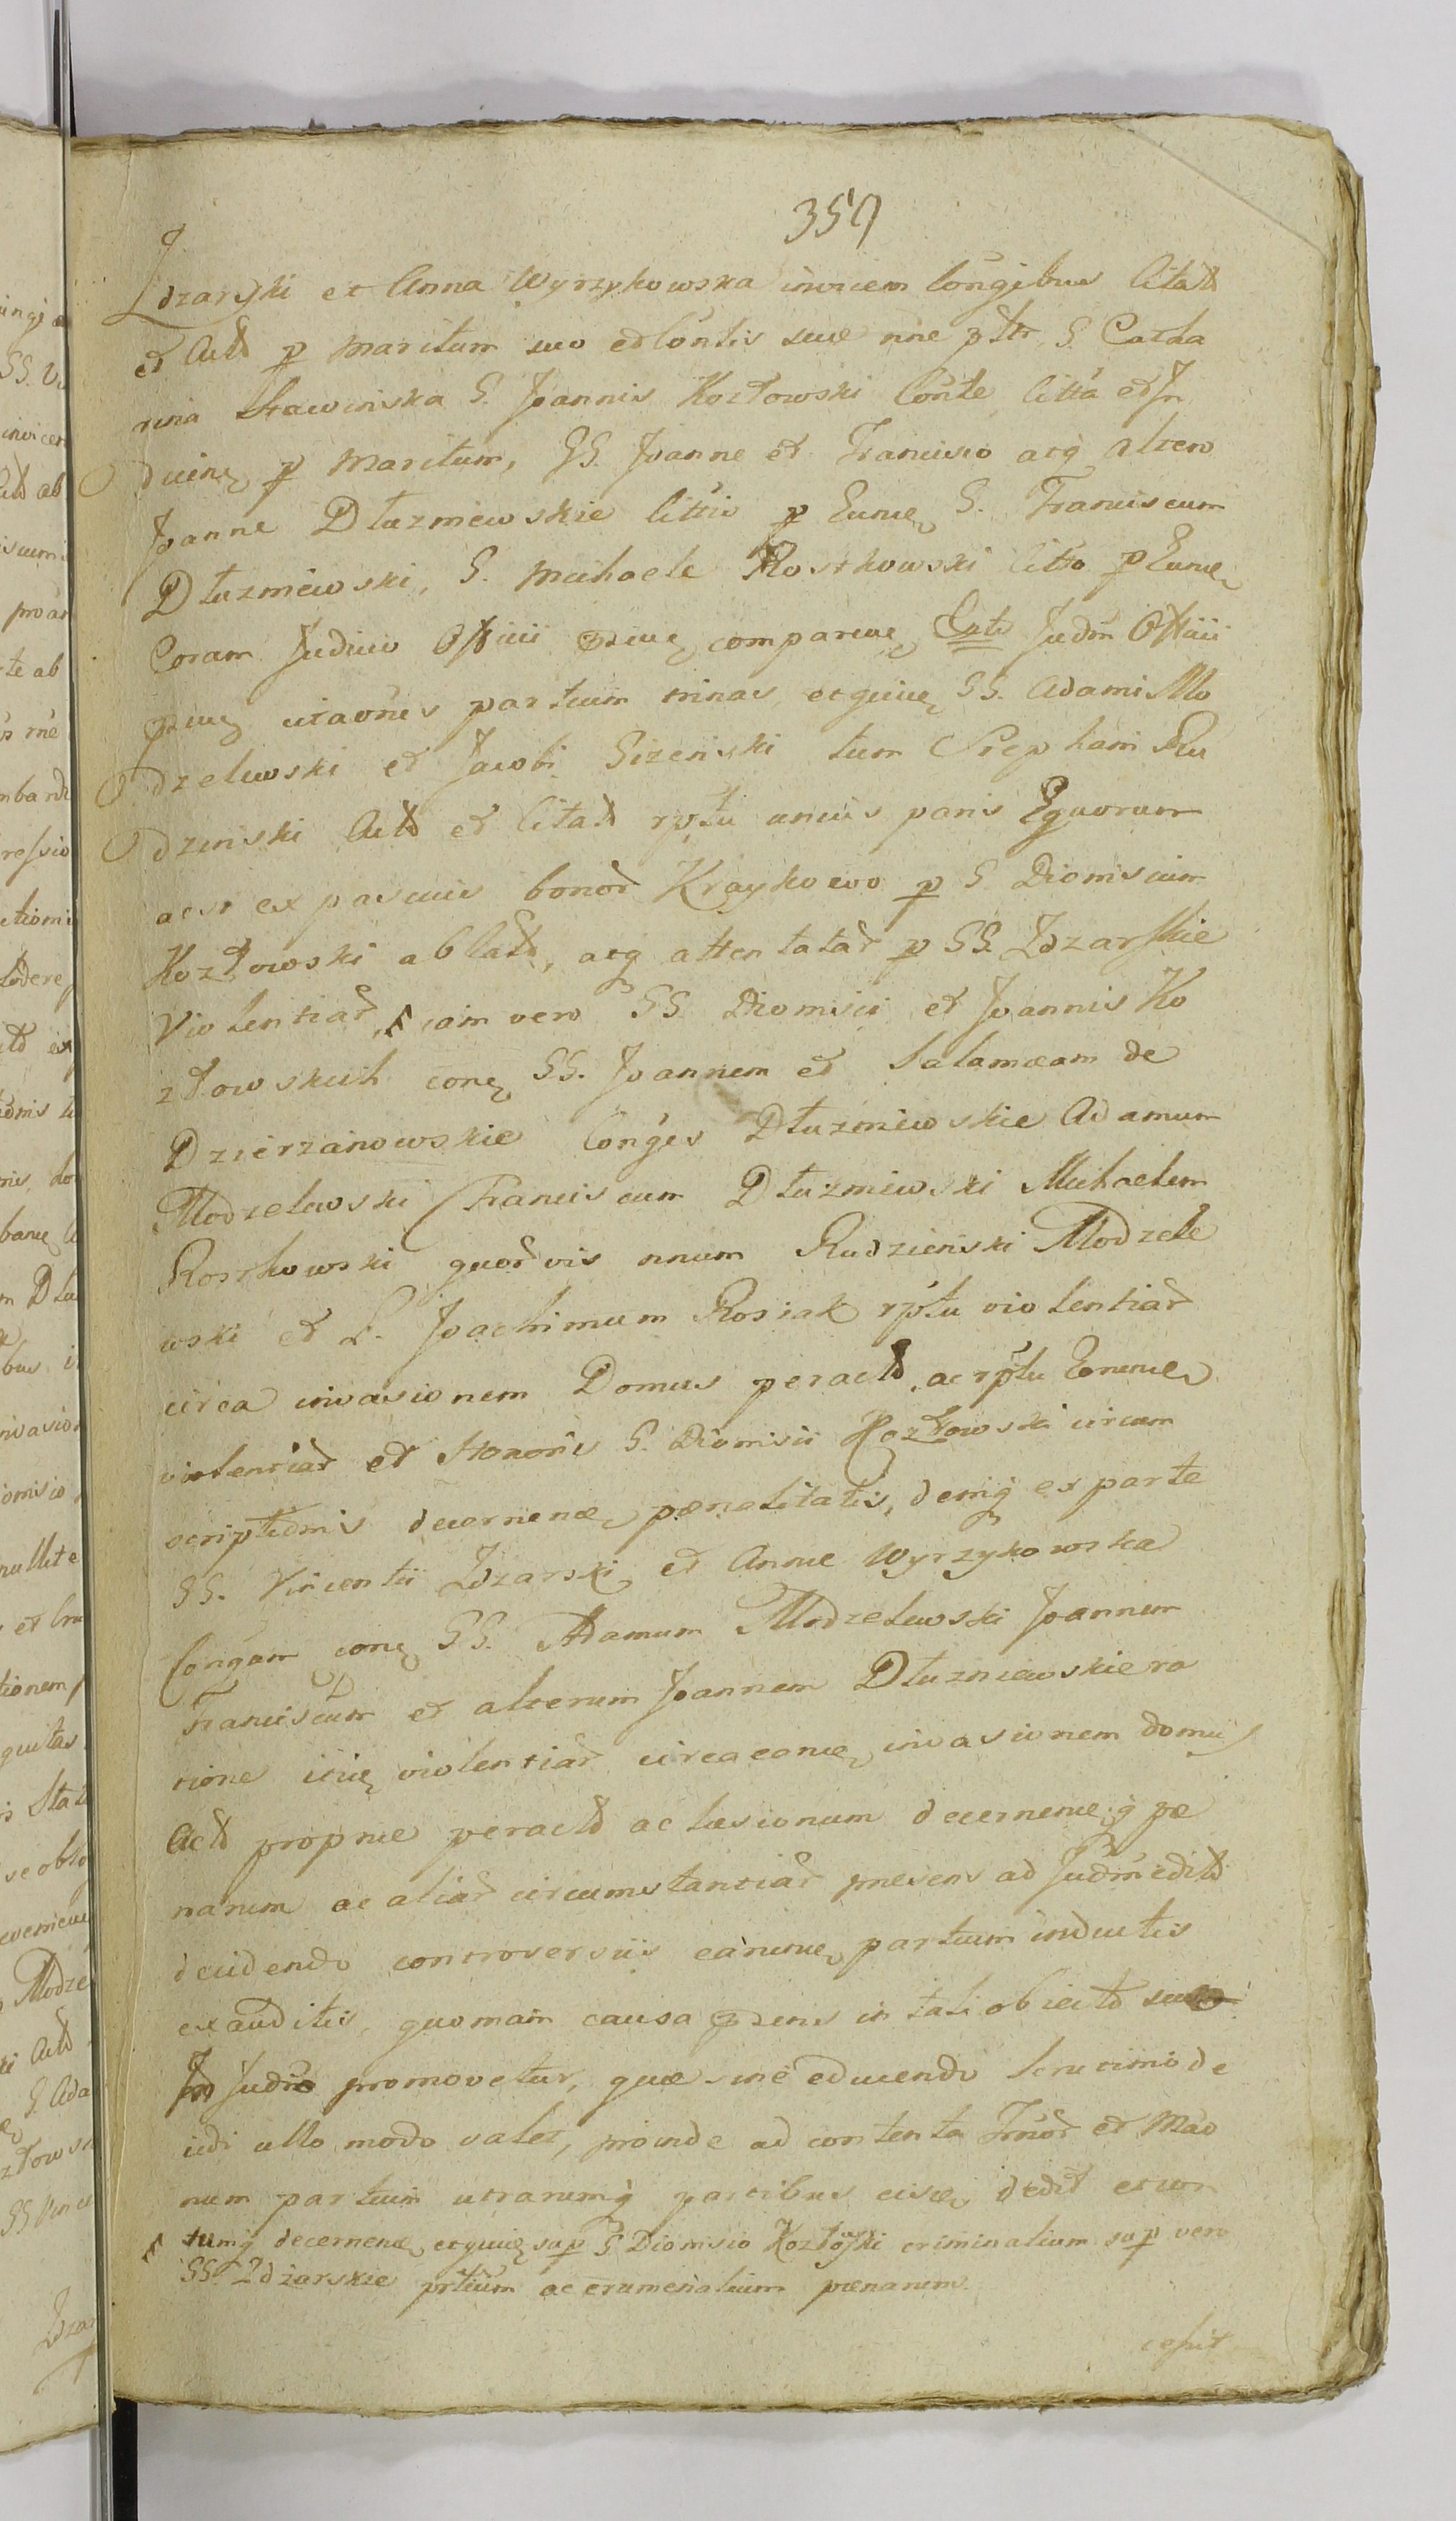 359
Zdzarski et Anna Wyrzykowska invicem Congibus Citatt
et Actt p maritum suo et Contis sue nne pttr, G. Catha
rina Sławinska G. Joannis Kozłowski Conte, Citta et In
ducine p Maritum, GG. Joanne et Francisco atq altero
Joanne Dłuzniewskie Cittis p Eunne G. Franciscum
Dłuzniewski, G. Michaele Rostkowski Citto p Eunne
Coram Judicio Officii comparue Judm Officii
citaones partium trinas, GG. Adami Mo
dzelewski et Jacobi Gizenski tum Stephani Ru
dzinski Actt et Citatt rptu unius paris Equorum
acst ex pascuis bonor Kraykowo p G Dionisium
Kozłowski ablatt, atq attentatar p GG. Zdzarskie
Violentiar, jam vero GG. Dionisii et Joannis Ko
złowskich cone GG. Joannem et Salamaeam de
Dzierzanowskie Conges Dłuzniewskie Adamum
Modzelewski Franciscum Dłuzniewski Michaelem
Rostkowski quorvis nnum Rudzienski Modzele
wski et L. Joachimum Rosiak rptu violentiar
circa invasionem Domus peractt, ac rptu Emenne
violentiar et Honoris G. Dionisii Kozłowski circum
scriptionis decernenae paenalitatis, deniq ex parte
GG. Vincentii Zdzarski et Annae Wyrzykowska
Congar cone GG. Adamum Modzelewski Joannem
Franciscum et alterum Joannem Dłuzniewskie ra
tione violentiar circa eonne invasionem domus
Actt propriae peractt ac laesionum decernenneq pae
narum ac aliar circumstantiar praesens ad Judm editt
decidendo controversiis earunne partium inductis
exauditis, quoniam causa pzens in tali obiecto
In Judio promovetur, quae sine educendo Scrutinio de
cidi ullo modo valet, proinde ad contenta Trnor et Mao
num partium utrarumq partibus eisce dedit et con
tumq decernenae sup G Dionisio Kozłowski criminalium sup vero
GG. Zdzarskie prtium ac crumenalium paenarum.
cessit